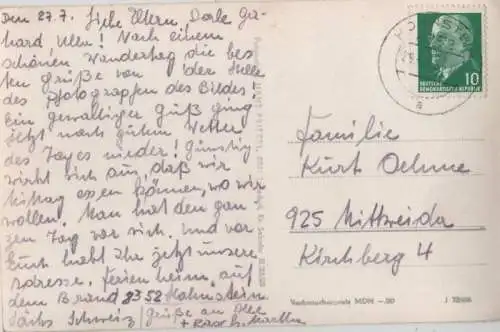 Den 27.7. Liebe Eltern, Dorle Ge-
hard Ulli! Nach einem
schönen Wandertag die bes
ten Grüße von der Stelle
des Photographen des Bildes!
Ein gewaltiger Guß ging
jetzt nach gutem Wetter
des Tages nieder! Günstig
wirkt sich aus, daß wir
Mittag essen können, wo wir
wollen. Man hat den gan-
zen Tag vor sich. Und vor
Euch habt Ihr jetzt unsere
Adresse. Ferienheim auf
dem Brand 8352 Hohnstein
Sächs Schweiz Grüße an Alle
Martha
DEUTSCHE
DEMOKRATISCHE REPUBLIK
10
Familie
Kurt Oehme
925 Mittweida
Kirchberg 4
Verbraucherpreis MDN -,20